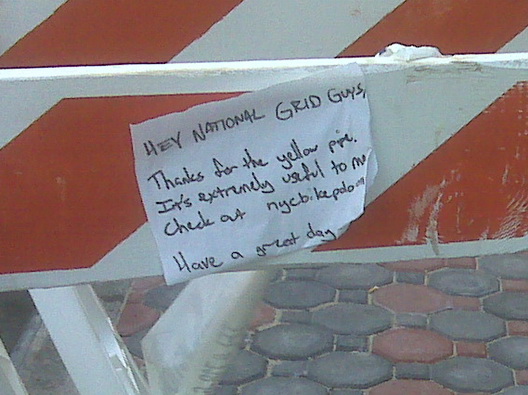 HEY NATIONAL GRID GUYS,
Thanks for the yellow pipe.
It's extremely useful to me
Check out nycbikepolo
Have a great day